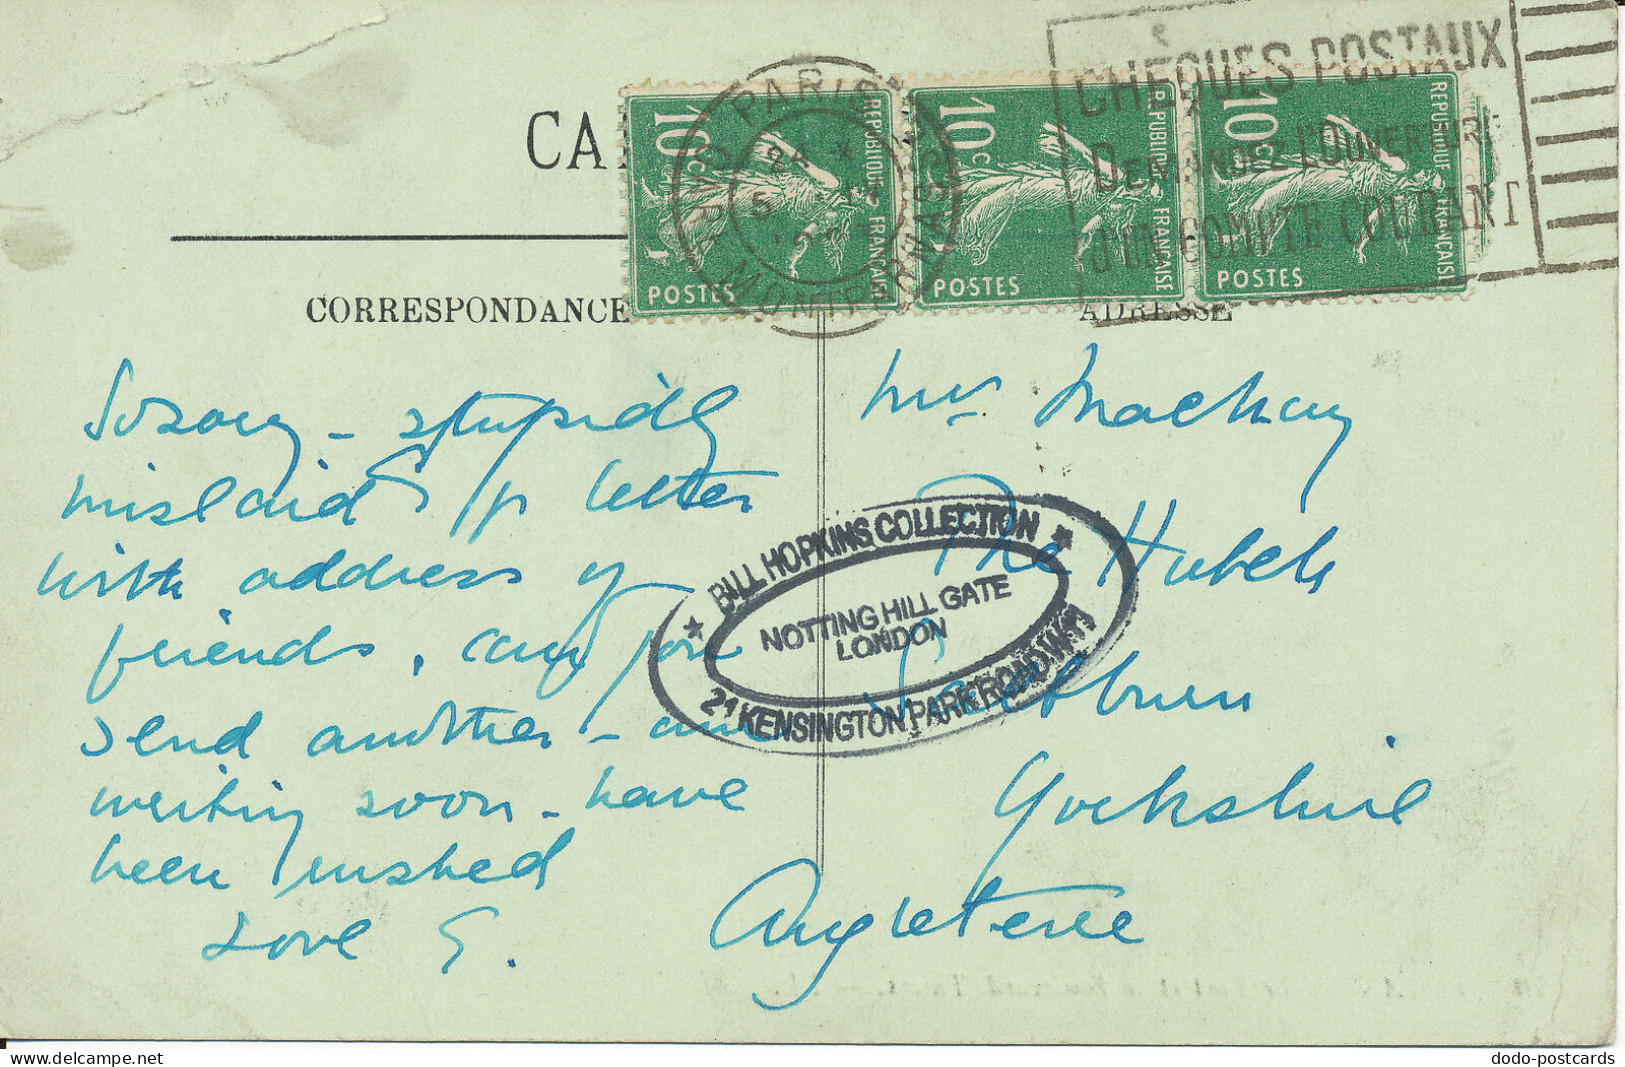 CA
10c
REPUBLIQUE FRANÇAISE
POSTES
10c
REPUBLIQUE FRANÇAISE
POSTES
10c
REPUBLIQUE FRANÇAISE
POSTES
PARIS
GARE MONTPARNASSE
CHÈQUES POSTAUX
DEMANDEZ L'OUVERTURE
d'UN COMPTE COURANT
CORRESPONDANCE
ADRESSE
So sorry - stupidly
mislaid yr letter
with address of
friends, can you
send another - am
writing soon - have
been rushed
Love G.
Mrs Mackay
The
Yorkshire
Angleterre
★ BILL HOPKINS COLLECTION ★
NOTTING HILL GATE
LONDON
21 KENSINGTON PARK ROAD W11
delcampe.net
dodo-postcards